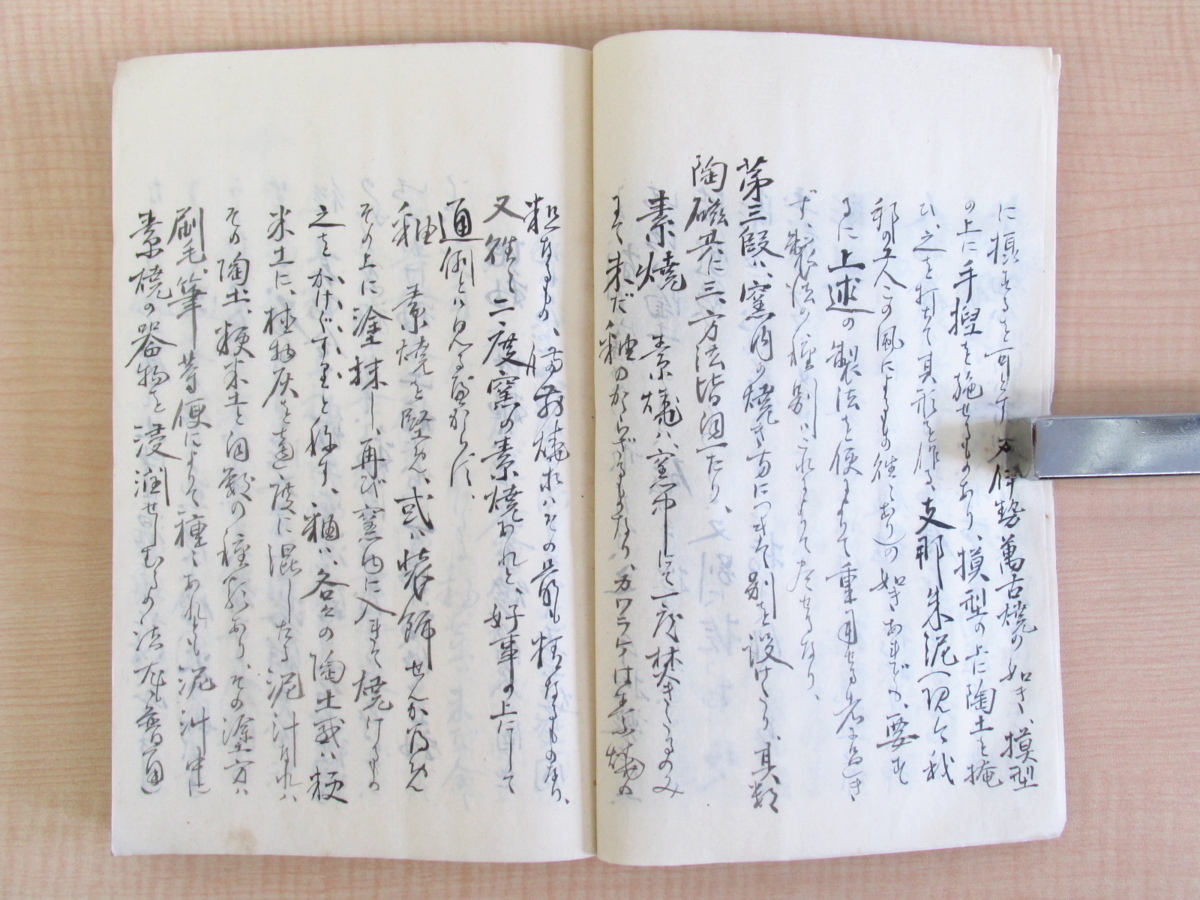 に摸するを可とす、又伊勢萬古焼の如き、摸型
の上に手捏を施せるものあり、摸型の上に陶土を掩
ひ、之を打て其形を作る、支那朱泥(現今我
邦の工人この風によるもの往々あり)の如きあれども、要す
るに上述の製法を便によりて重用せる者
ず、製法の種別はこれにて足るなり、
第三段ハ、窯内の焼き方につきて別を設けたり、其類
陶磁共に三、方法皆同一たり、
素焼 素焼ハ、窯中にて一度焚きたるのみ
にて未だ釉のかゝらざるものなり、カワラケは素焼の
粗なるもの、焼は其の最も粗なるものなり、
又往々二度窯の素焼あれど、好事の上にして
通例とハ見るべからず、
釉 素焼を堅め、或ハ装飾せんが為め
その上に塗抹し、再び窯内に入れて焼けるもの
之をかけぐすりと称す、釉ハ、各々の陶土或ハ粳
米土に、植物灰を適度に混じたる泥汁なれハ
その陶土、粳米土と同数の種類あり、その塗方ハ
刷毛、筆等便によりて種々あれども泥汁中に
素焼の器物を浸潤せしむるの法尤も普通